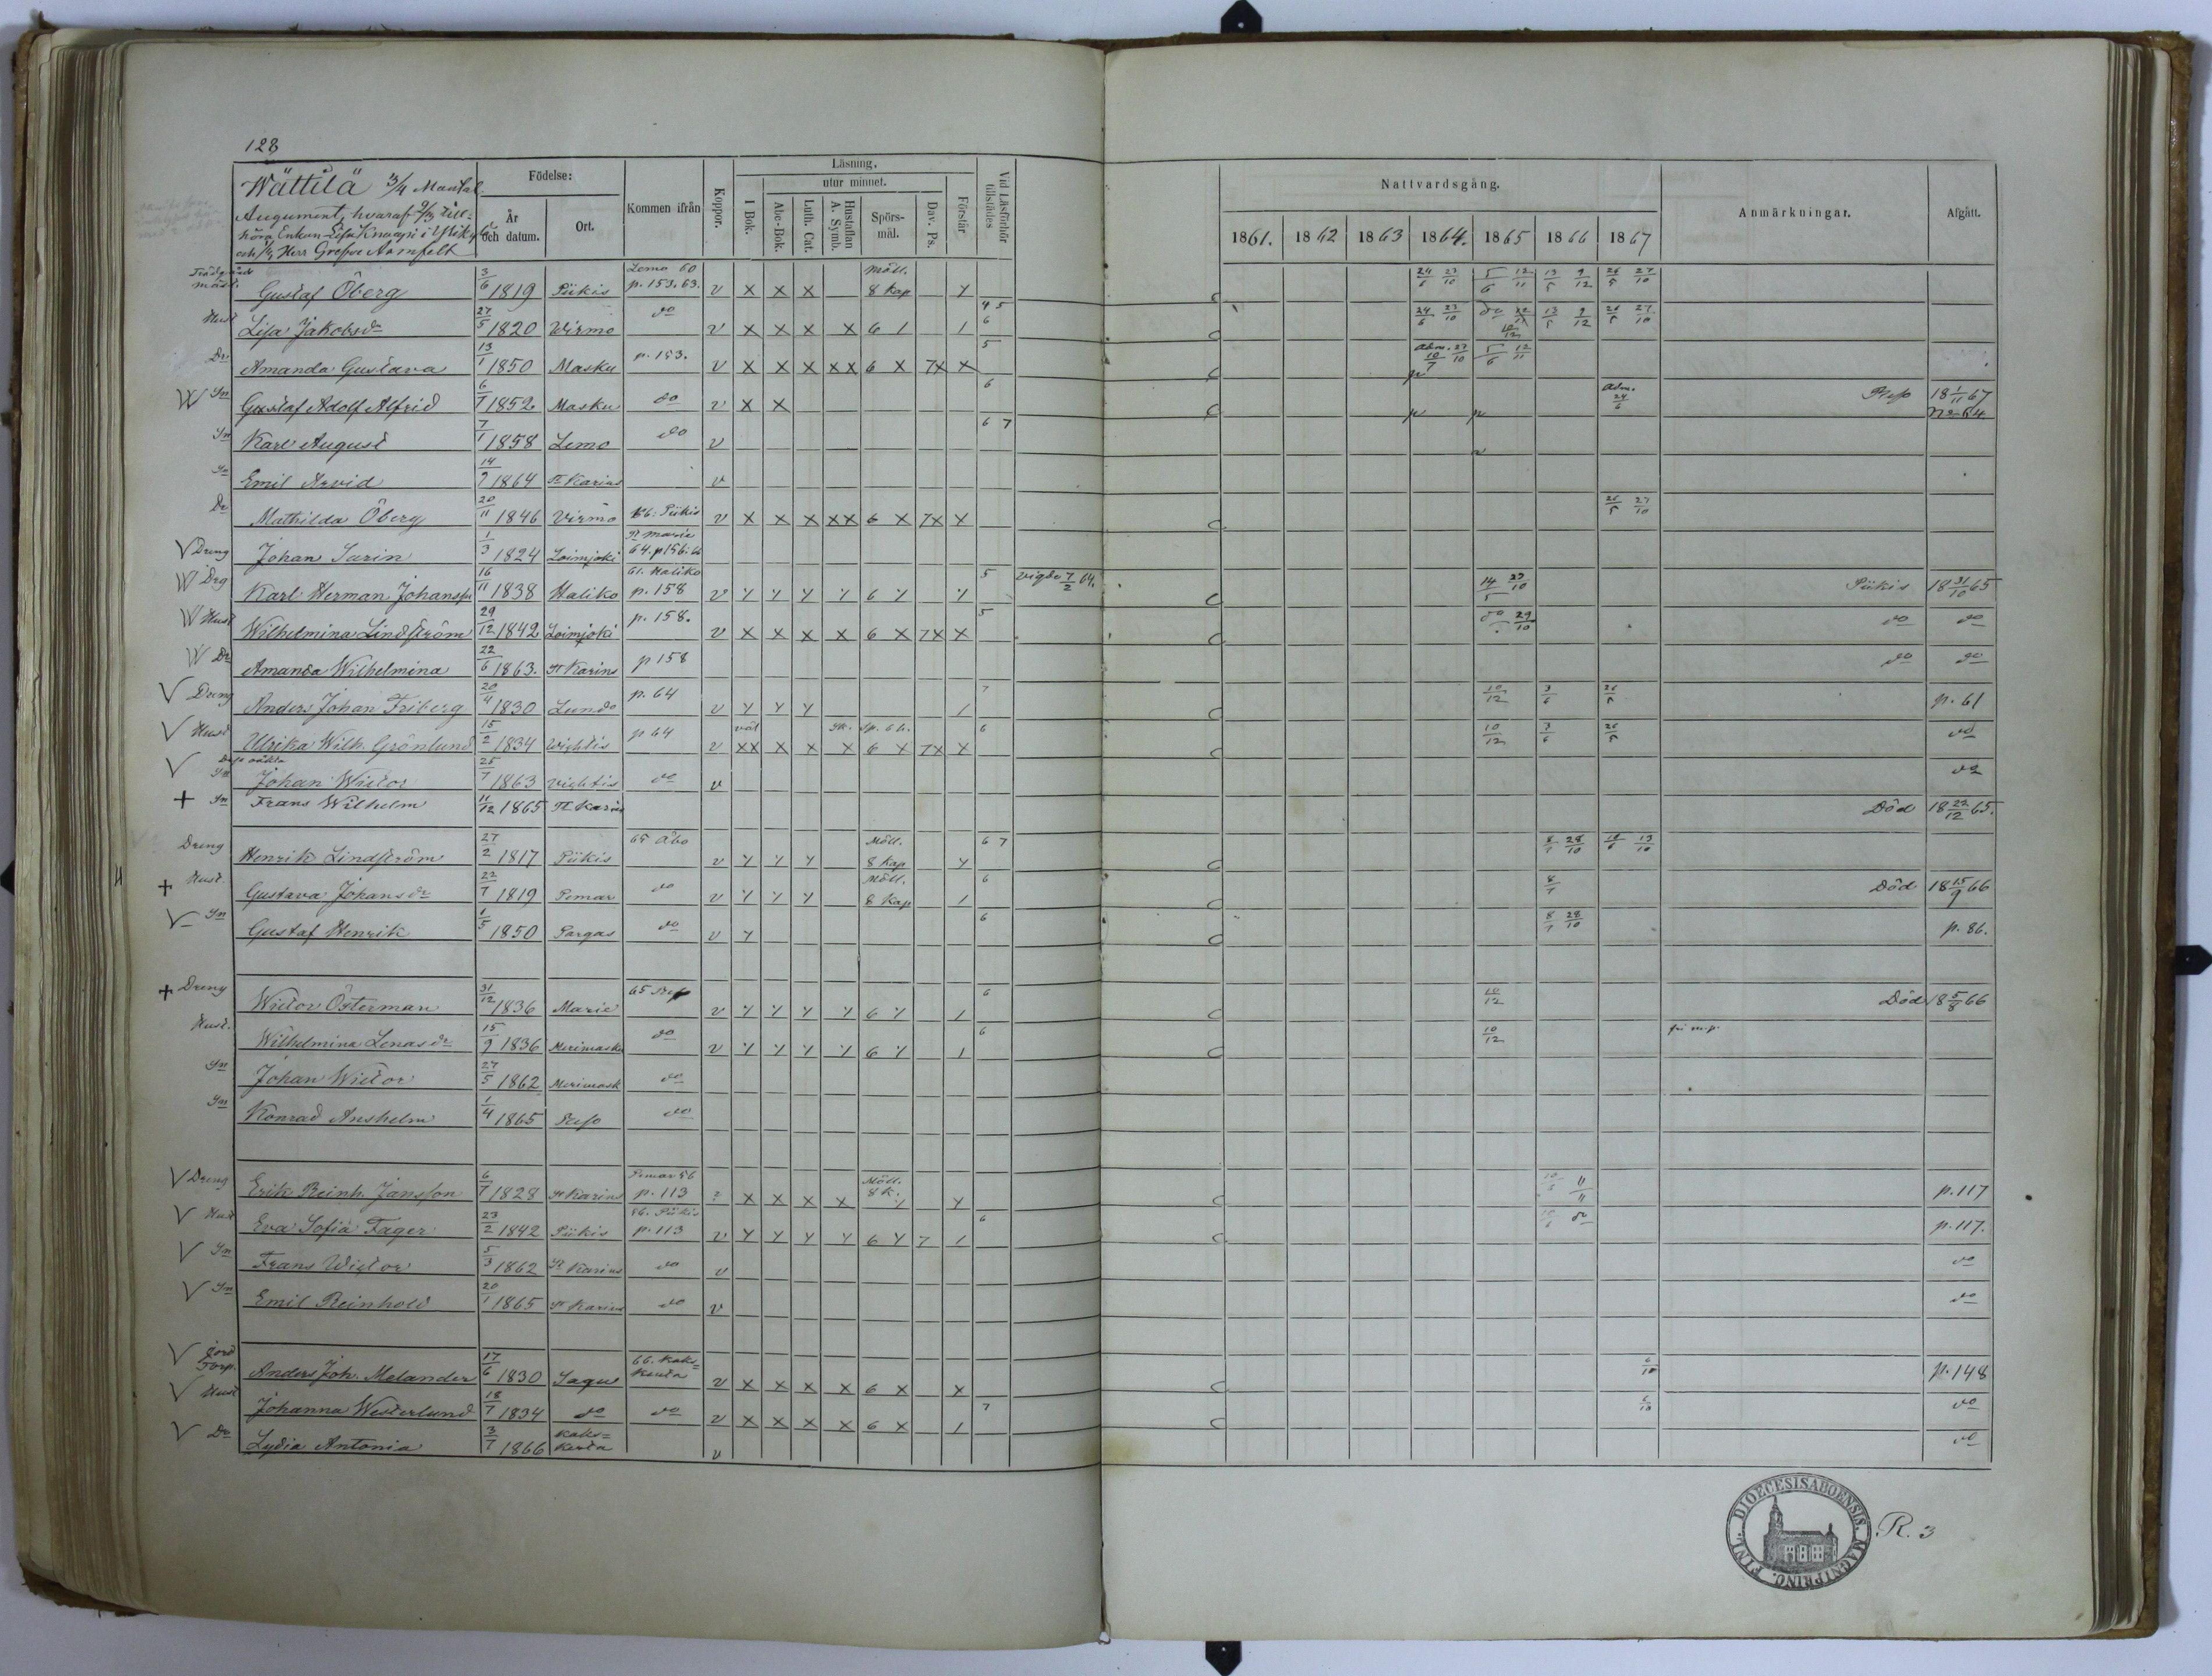 128
Wättilä 3/4 Mantal
Augument, hvaraf 2/3 till-
höra Enkan Lisa Knaapi i
och 1/3 Herr Grefve Armfelt
Födelse:
År och datum.
Ort.
Kommen ifrån
Koppor.
Läsning.
utur minnet.
I Bok.
Abc-Bok.
Luth. Cat.
Hustaflan A. Symb.
Spörs-mål.
Dav. Ps.
Förstår
Vid Läsförhör tillstädes
Nattvardsgång.
1861. 1862 1863 1864. 1865 1866 1867
Anmärkningar.
Afgått.
Trädgårds mäst. Gustaf Öberg 3/6 1819 Piikis Lemo 60 p. 153. 63. v x x x Möll. 8 Kap y 24/6 23/10 5/6 12/11 13/5 9/12 26/5 27/10
Hust Lisa Jakobsdr 27/5 1820 Virmo do v x x x x 6 / / 4 5 6 24/6 23/10 do 10/12 13/5 9/12 26/5 27/10
Dr Amanda Gustava 13/1 1850 Masku p. 153. v x x x xx 6 x 7x x 5 adm. 10/7 23/10 5/6 12/11
Sn Gustaf Adolf Alfrid 6/7 1852 Masku do v x x 6 adm. 24/6 Reso 18 1/11 67 No 64
Sn Karl August 7/1 1858 Lemo do v 6 7
Sn Emil Arvid 14/9 1864 St Karins v
Dr Mathilda Öberg 20/11 1846 Virmo 66: Piikis v x x x xx 6 x 7x x 26/5 27/10
V Dreng Johan Sarin 1/3 1824 Loimjoki St Marie 64. p 156:
W Drg Karl Herman Johansson 16/11 1838 Haliko 61. Haliko p. 158 v y y y y 6 y y 5 vigde 7/2 64. 14/5 29/10 Piikis 18 31/10 65
W Hust Wilhelmina Lindström 29/12 1842 Loimjoki p. 158. v x x x x 6 x 7x x 5 do 29/10 do do
W Dr Amanda Wilhelmina 22/6 1863. St Karins p 158 do do
V Dreng Anders Johan Friberg 20/11 1830 Lundo p. 64 v y y y / 7 10/12 3/6 26/5 p. 61
V Hust Ulrika Wilh. Grönlund 15/2 1834 Wichtis p 64 v xx x x x 6 x 7x x 6 10/12 3/6 26/5 do
V Sn Johan Wictor 25/7 1863 Vichtis do v do
+ Sn Frans Wilhelm 11/12 1865 St Karins Död 18 22/12 65.
Dreng Henrik Lindström 27/2 1817 Piikis 65 Åbo v y y y Möll. 8 Kap y 6 7 8/7 28/10 13/10
+ Hust. Gustava Johansdr 22/7 1819 Pemar do v y y y Möll. 8 Kap / 6 8/7 Död 18 15/9 66
V Sn Gustaf Henrik 1/5 1850 Pargas do v y 6 8/7 28/10 p. 86.
+ Dreng Wictor Österman 31/12 1836 Marie 65 Reso v y y y y 6 y / 6 10/12 Död 18 5/8 66
Hust. Wilhelmina Lenasdr 15/9 1836 Merimasku do v y y y y 6 y / 6 10/12
Sn Johan Wictor 27/5 1862 Merimask do
Sn Konrad Anshelm 1/4 1865 Reso do
V Dreng Erik Reinh. Jansson 6/7 1828 St Karins Pemar 56 p. 113 x x x x Möll. 8 K. y p. 117
V Hust Eva Sofia Fager 23/2 1842 Piikis 56. Piikis p. 113 v y y y y 6 y 7 / 6 do p. 117.
V Sn Frans Wictor 5/3 1862 St Karins do v do
V Sn Emil Reinhold 20/1 1865 St Karins do v do
V Jord Torp. Anders Joh. Melander 17/6 1830 Sagu 66. Kaks= kerta v x x x x 6 x x 6/10 p. 148
V Hust Johanna Westerlund 18/7 1834 do do v x x x x 6 x / 7 6/10 do
V Dr Lydia Antonia 3/7 1866 Kaks= kerta v do
DIOECESIS ABOENSIS. MAGNI PRINC. FINL.
R. 3